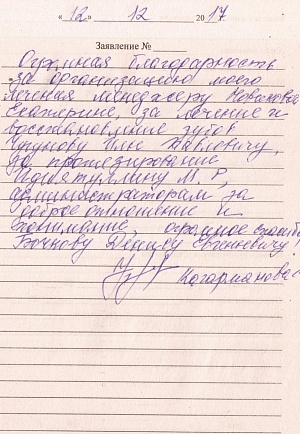 « 12 » 12 2017
Заявление №
Огромная благодарность
за организацию моего
лечения менеджеру Новиковой
Екатерине, за лечение и
восстановление зубов
Илье Павловичу,
за протезирование
М. Р,
администраторам за
доброе отношение и
понимание, огромное спасибо
Бочкову Денису Евгениевичу!